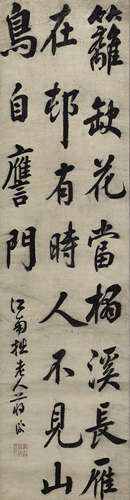 籬缺花當溪長
在邨有時人不見山
鳥自譍門
江南拙老人蔣衡